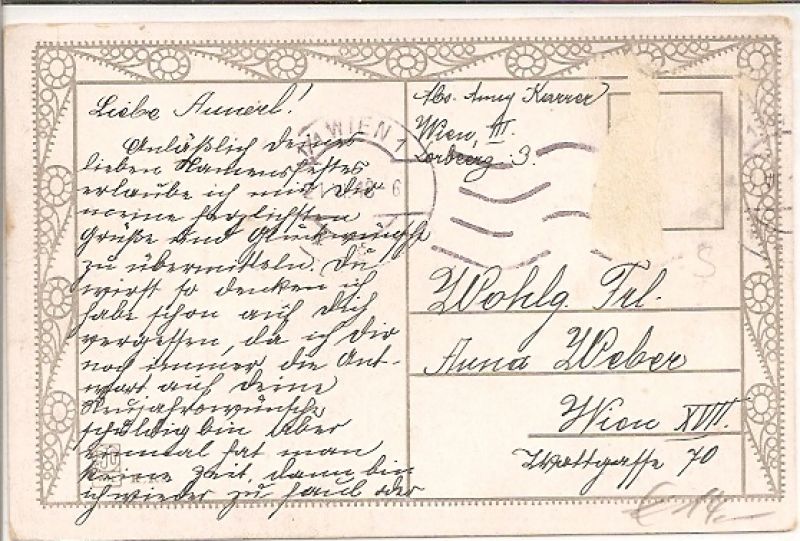 Liebe Annerl!
Anläßlich deines
lieben Namensfestes
erlaube ich mir Dir
meine herzlichsten
Grüße und Glückwünsche
zu übermitteln. Du
wirst so denken ich
habe schon auf Dich
vergessen, da ich dir
noch immer die Ant-
wort auf deine
Neujahrswünsche
schuldig bin Aber
einmal hat man
keine Zeit, dann bin
ich wieder zu faul oder
WIEN
6
Abs. Anny Karrer
Wien, III.
3.
Wohlg. Frl.
Anna Weber
Wien XVIII.
Wattgasse 70